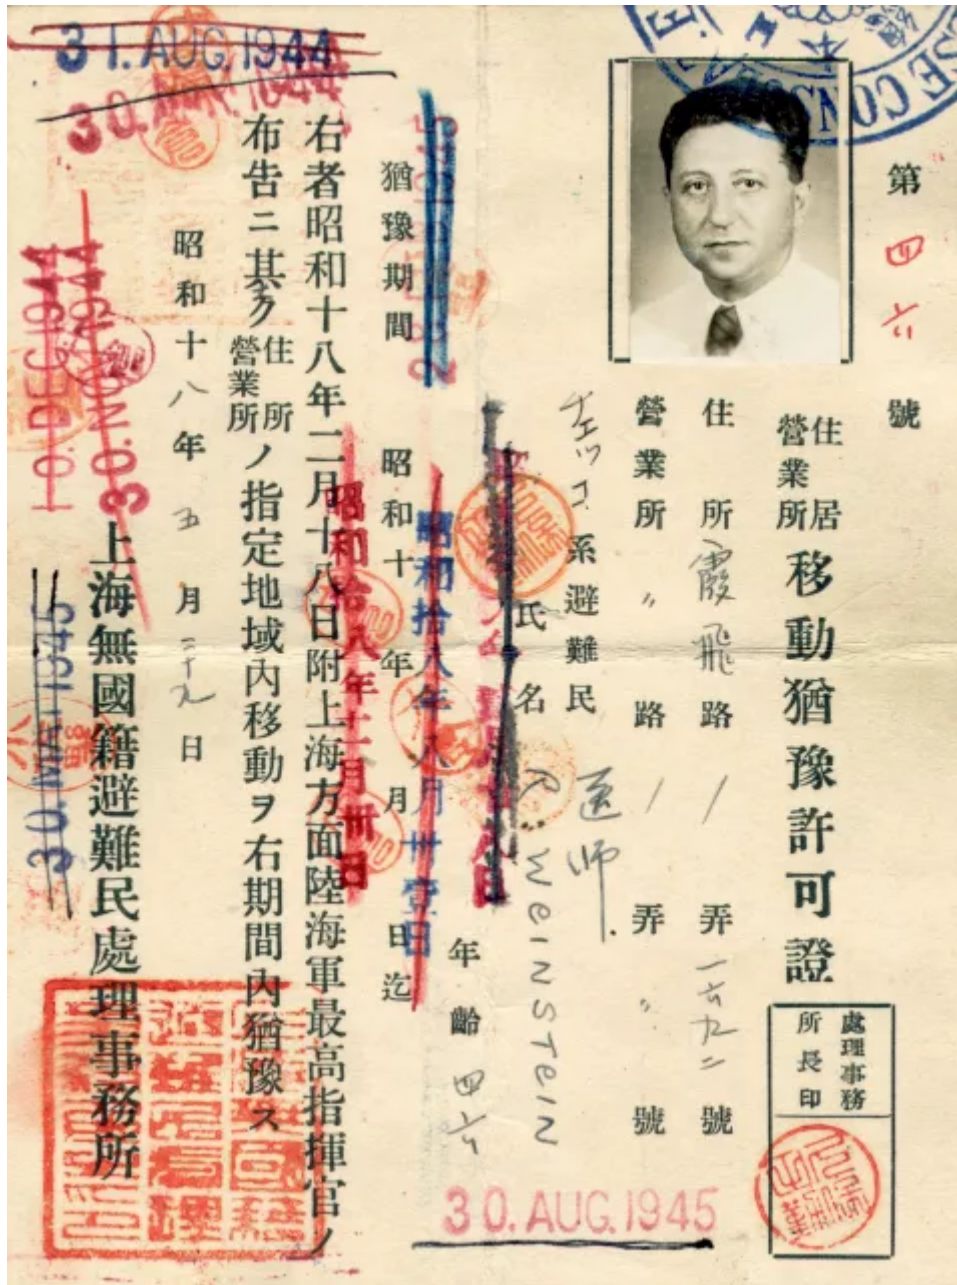 第四六號
住居
營業所
移動猶豫許可證
處理事務
所長印
住所霞飛路／弄一六九二號
營業所〃路／弄〃號
系避難民 医师
氏名 R. WEINSTEIN
年齡 四六
猶豫期間 昭和十年月日迄
昭和拾八年八月卅壹日
昭和拾八年十一月卅日
右者昭和十八年二月十八日附上海方面陸海軍最高指揮官ノ
布告ニ其ノ住所
營業所
ノ指定地域內移動ヲ右期間內猶豫ス
昭和十八年五月二十九日
上海無國籍避難民處理事務所
31.AUG.1944
10.DEC.1944
30.NOV.1944
30.MAI 1945
30.AUG.1945